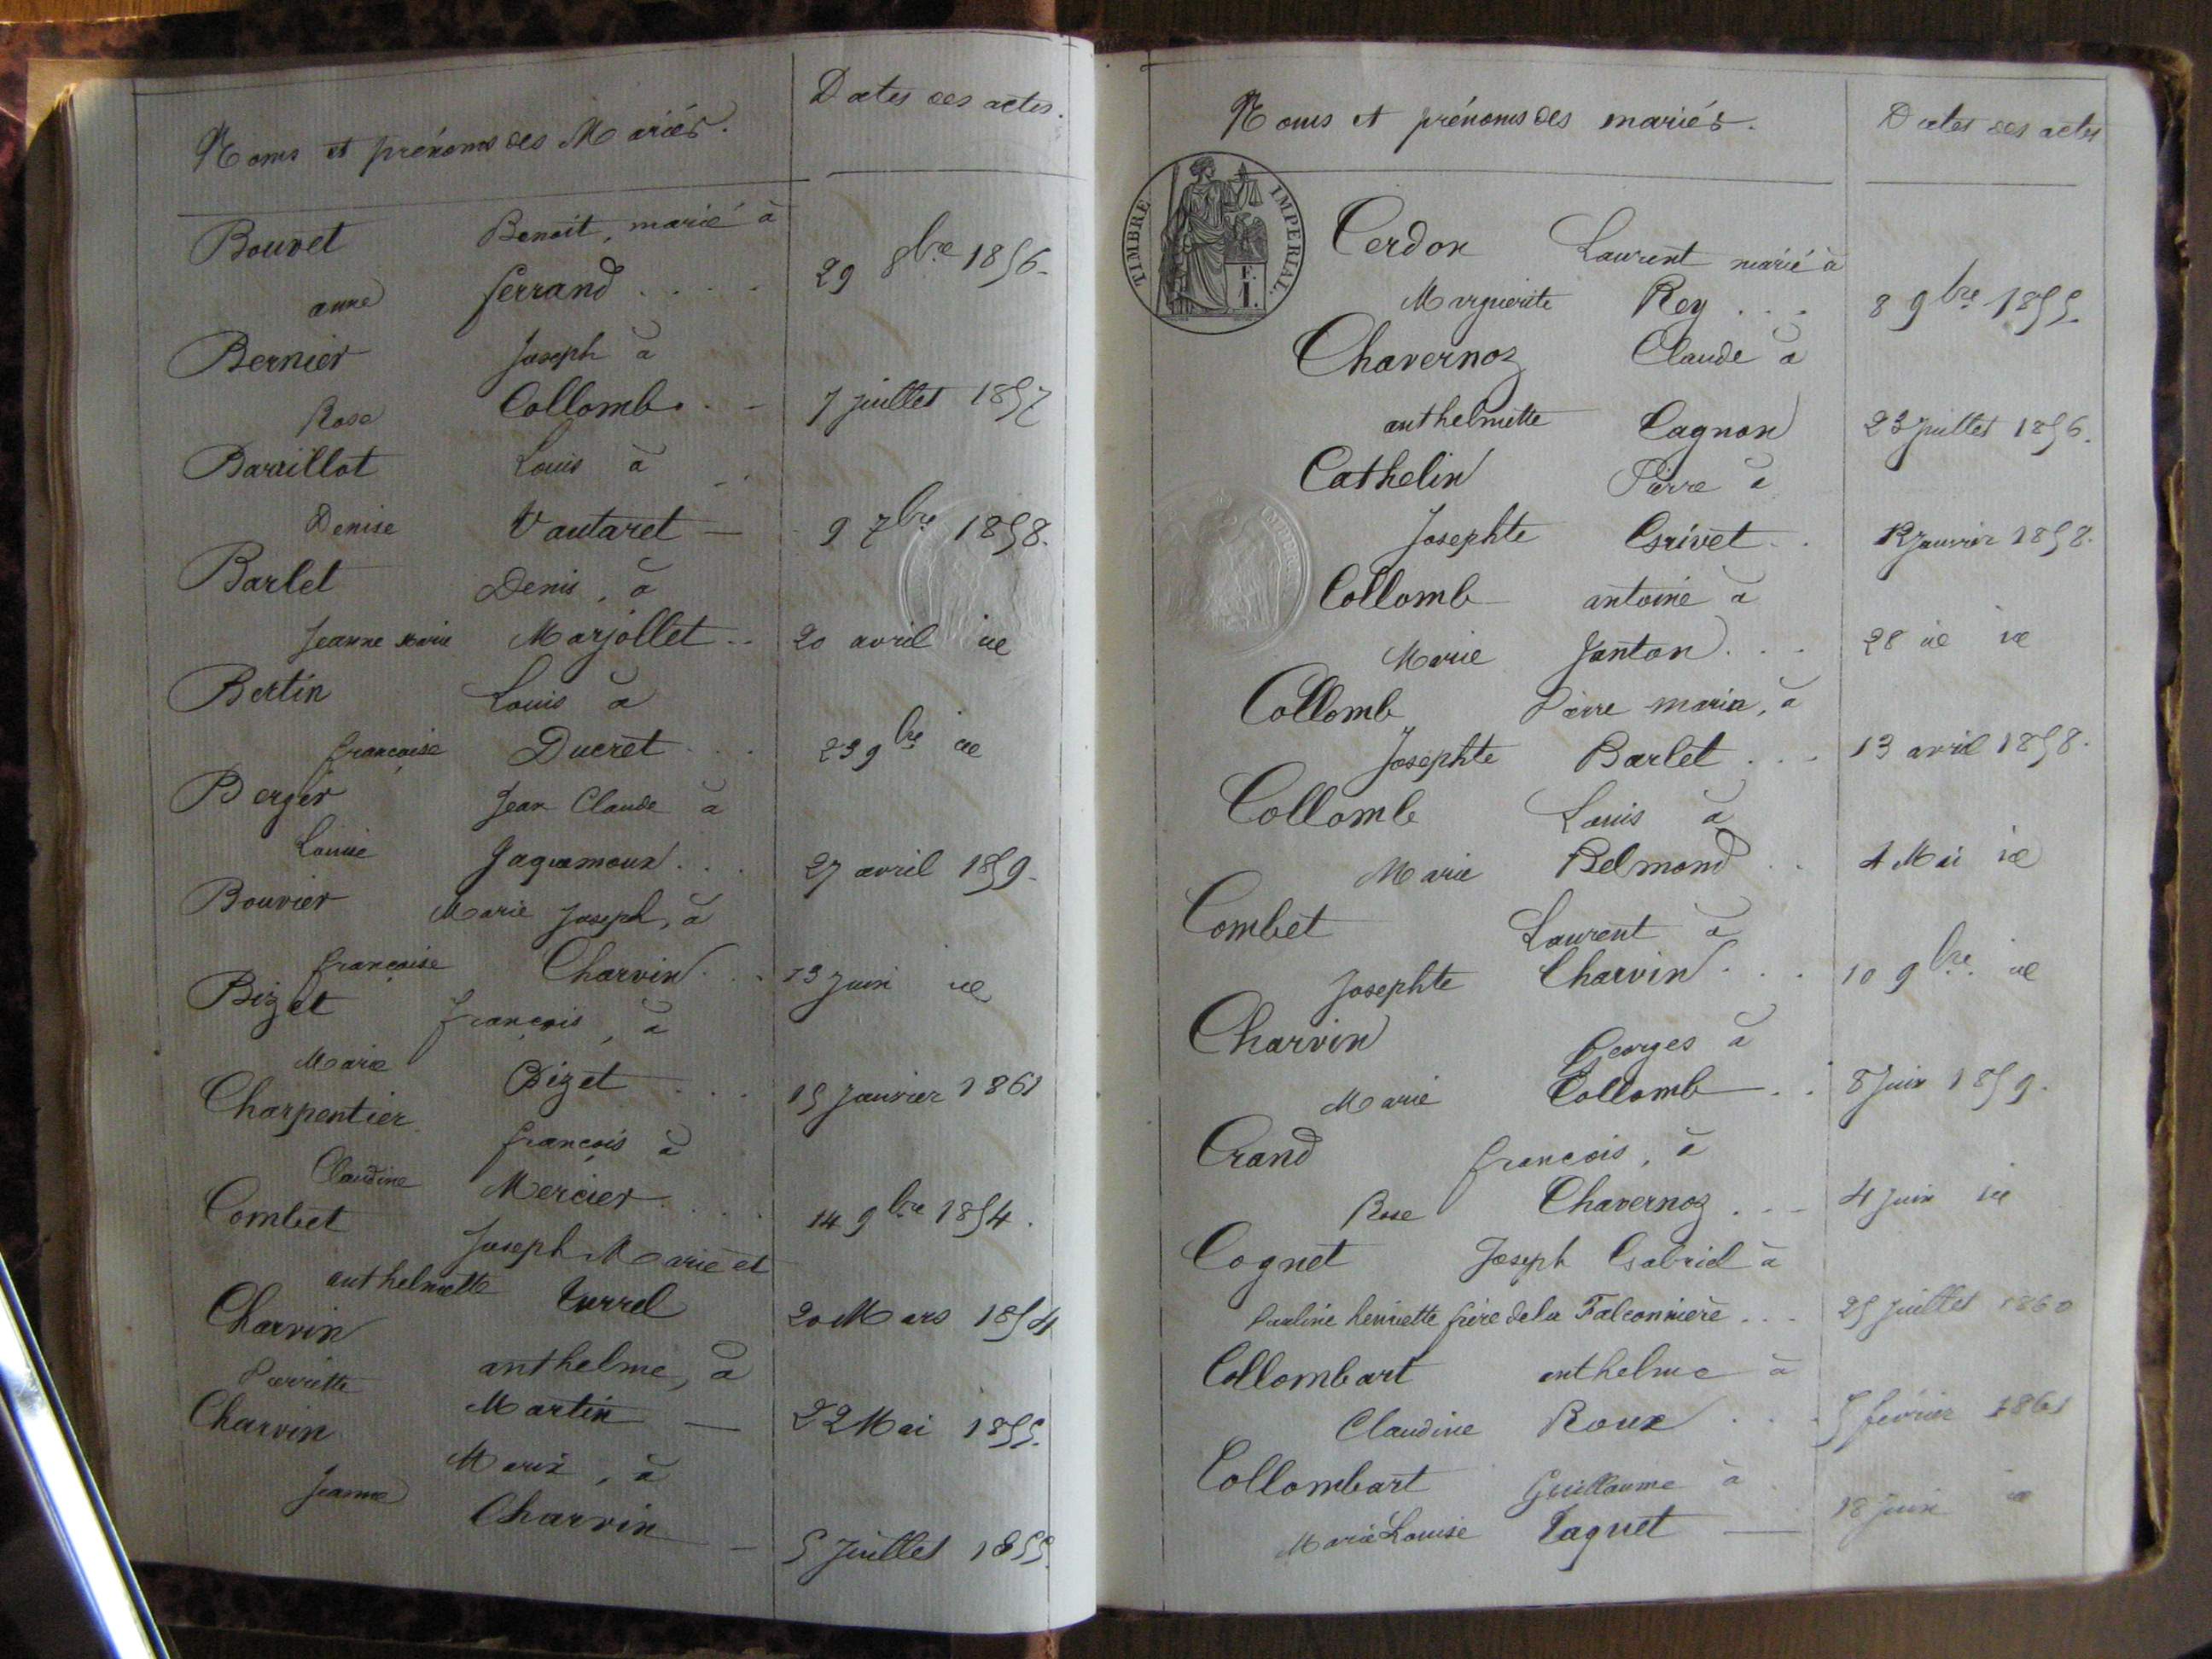 Noms et prénoms des Mariés.
Dates des actes.
Bouvet Benoit, marié à
anne ferrand . . . . 29 8bre 1856.
Bernier Joseph à
Rose Collomb . . - 7 juillet 1857
Baraillot Louis à
Denise Vautaret — 9 7bre 1858.
Barlet Denis, à
Jeanne Marie Marjollet . . 20 avril id
Bertin Louis à
françoise Ducret . . . 23 9bre id
Berger Jean Claude à
Louise Jaquemoux . . . 27 avril 1859.
Bouvier Marie Joseph, à
françoise Charvin . . . 13 Juin id
Bizet françois, à
Marie Bizet . . . 15 Janvier 1861
Charpentier françois à
Claudine Mercier . . . . 14 9bre 1854.
Combet Joseph Marie et
anthelmette Turrel 20 Mars 1854
Charvin anthelme, à
Pierrette Martin — 22 Mai 1855.
Charvin Marie, à
Jeanne Charvin — 5 Juillet 1855.
Noms et prénoms des mariés.
Dates des actes
TIMBRE IMPERIAL.
F.
I.
Cerdon Laurent marié à
Marguerite Rey . . . 8 9bre 1855.
Chavernoz Claude à
anthelmette Cagnon 23 Juillet 1856.
Cathelin Pierre à
Josephte Grivet . . 12 Janvier 1858.
Collomb antoine à
Marie Janton . . . 28 id id
Collomb Pierre marin, à
Josephte Barlet . . . 13 avril 1858.
Collomb Louis à
Marie Belmond . . 4 Mai id
Combet Laurent à
Josephte Charvin . . . 10 9bre id
Charvin Georges à
Marie Collomb . . 8 Juin 1859.
Crand françois, à
Rose Chavernoz . . . 4 Juin id
Cognet Joseph Gabriel à
Pauline henriette frère de la Falconnière . . . 25 Juillet 1860
Collombart anthelme à
Claudine Roux . . . 5 février 1861
Collombart Guillaume à
Marie Louise Taquet — 18 Juin id